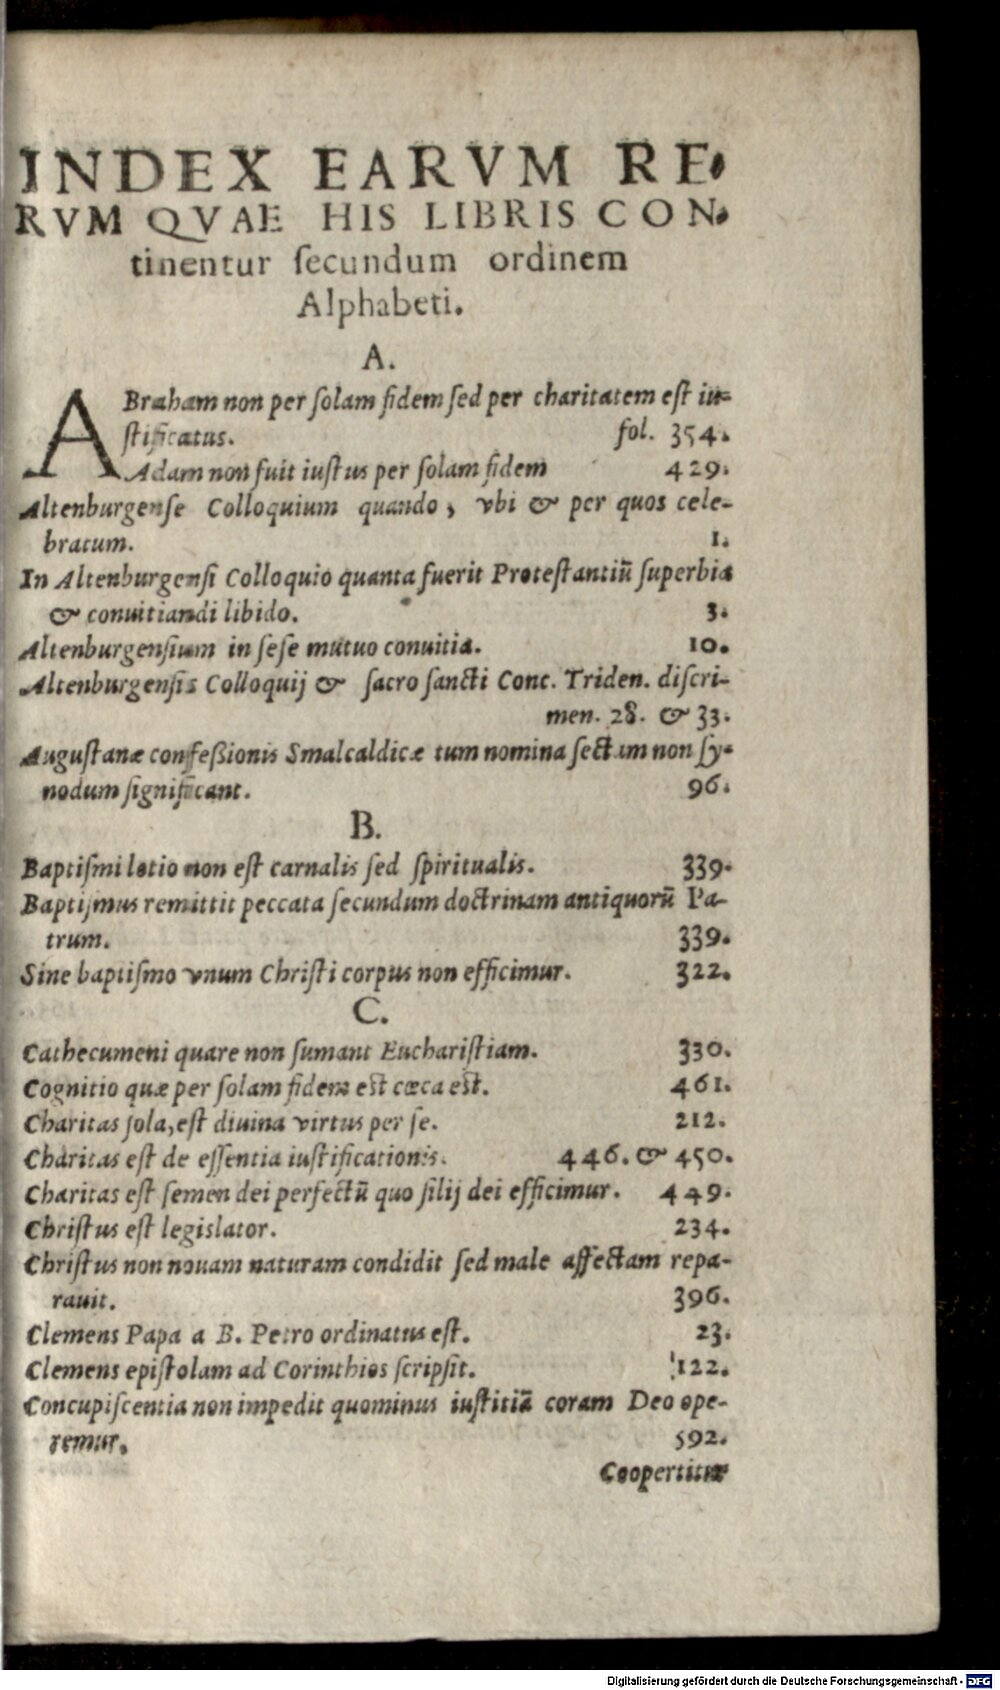 INDEX EARVM RE-
RVM QVAE HIS LIBRIS CON-
tinentur ſecundum ordinem
Alphabeti.
A.
ABraham non per ſolam fidem ſed per charitatem eſt iu-
ſtificatus. fol. 354.
Adam non fuit iuſtus per ſolam fidem 429.
Altenburgenſe Colloquium quando, vbi & per quos cele-
bratum. 1.
In Altenburgenſi Colloquio quanta fuerit Proteſtantiū ſuperbia
& conuitiandi libido. 3.
Altenburgenſium in ſeſe mutuo conuitia. 10.
Altenburgenſis Colloquij & ſacro ſancti Conc. Triden. diſcri-
men. 28. & 33.
Auguſtanæ confeßionis Smalcaldicæ tum nomina ſectam non ſy-
nodum ſignificant. 96.
B.
Baptiſmi lotio non eſt carnalis ſed ſpiritualis. 339.
Baptiſmus remittit peccata ſecundum doctrinam antiquorū Pa-
trum. 339.
Sine baptiſmo vnum Chriſti corpus non efficimur. 322.
C.
Cathecumeni quare non ſumant Euchariſtiam. 330.
Cognitio quæ per ſolam fidem eſt cœca eſt. 461.
Charitas ſola, eſt diuina virtus per ſe. 212.
Charitas eſt de eſſentia iuſtificationis. 446. & 450.
Charitas eſt ſemen dei perfectū quo filij dei efficimur. 449.
Chriſtus eſt legislator. 234.
Chriſtus non nouam naturam condidit ſed male affectam repa-
rauit. 396.
Clemens Papa a B. Petro ordinatus eſt. 23.
Clemens epiſtolam ad Corinthios ſcripſit. 122.
Concupiſcentia non impedit quominus iuſtitiā coram Deo ope-
remur. 592.
Coopertitur
Digitalisierung gefördert durch die Deutsche Forschungsgemeinschaft - DFG